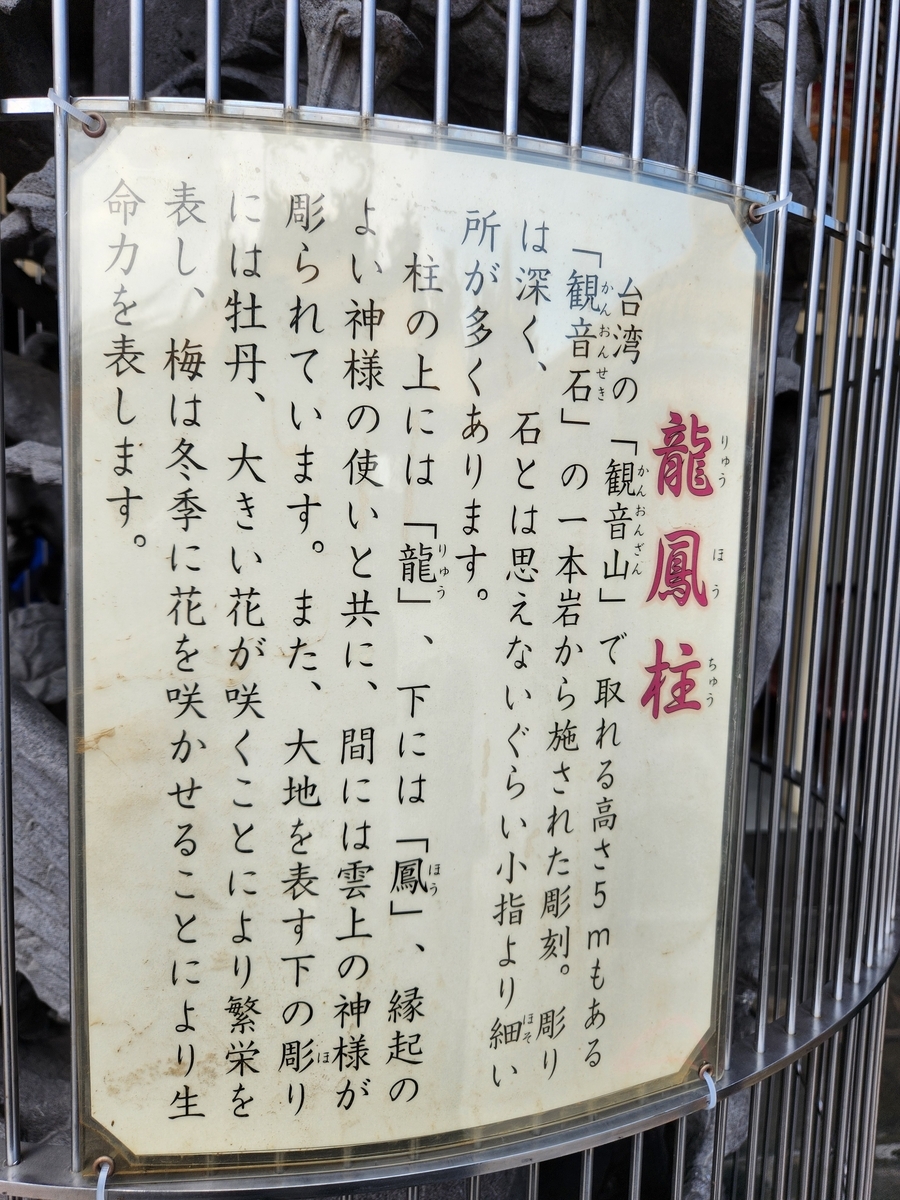 龍鳳柱
台湾の「観音山」で取れる高さ5mもある
「観音石」の一本岩から施された彫刻。彫り
は深く、石とは思えないぐらい小指より細い
所が多くあります。
柱の上には「龍」、下には「鳳」、縁起の
よい神様の使いと共に、間には雲上の神様が
彫られています。また、大地を表す下の彫り
には牡丹、大きい花が咲くことにより繁栄を
表し、梅は冬季に花を咲かせることにより生
命力を表します。